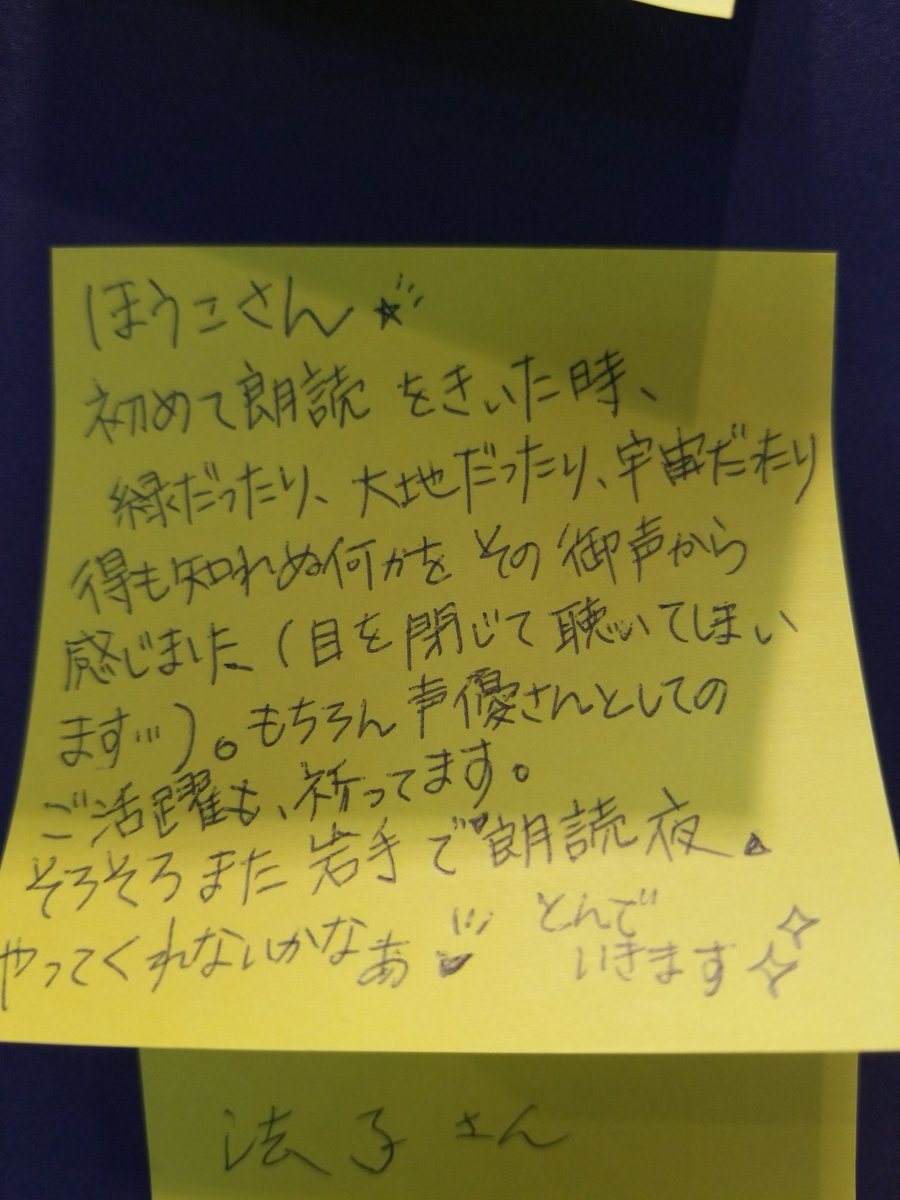 ほうこさん☆
初めて朗読をきいた時、
緑だったり、大地だったり、宇宙だったり
得も知れぬ何かをその御声から
感じました(目を閉じて聴いてしまい
ます…)。もちろん声優さんとしての
ご活躍も、祈ってます。
そろそろまた岩手で朗読夜。
やってくれないかなぁ
とんで
いきます
法子さん